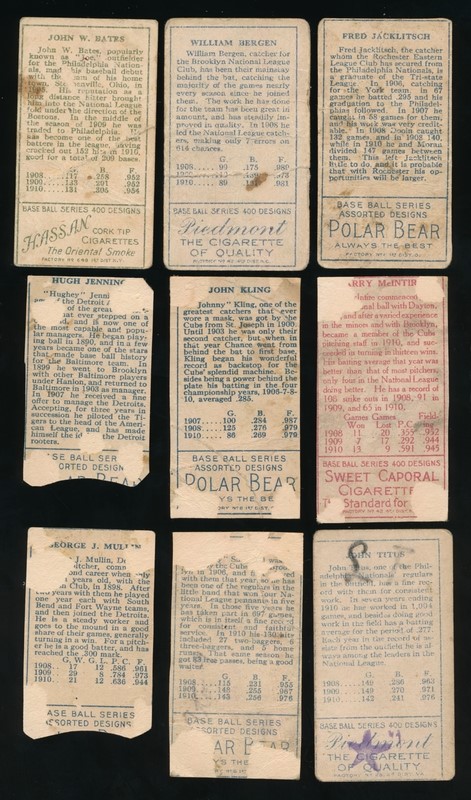 JOHN W. BATES
John W. Bates, popularly
known as "Joe," outfielder
for the Philadelphia Nation-
als, made his baseball debut
with the team of his home
town,
His reputation as a
long distance hitter brought
him into the National League
fold under the direction of the
Bostons. In the middle of
the season of 1909 he was
traded to Philadelphia. He
has become one of the best
batters in the league, having
cracked out 152 hits in 1910,
good for a total of 209 bases.
G. B. F.
1908 .258 .952
1909 .133 .291 .952
1910 .131 .305 .954
BASE BALL SERIES 400 DESIGNS
HASSAN
CORK TIP
CIGARETTES
The Oriental Smoke
WILLIAM BERGEN
William Bergen, catcher for
the Brooklyn National League
Club, has been their mainstay
behind the bat, catching the
majority of the games nearly
every season since he joined
them. The work he has done
for the team has been great in
amount, and has steadily im-
proved in quality. In 1908 he
led the National League catch-
ers, making only 7 errors on
614 chances.
G. B. F.
1908 99 .175 .989
1910 89 .161 .981
BASE BALL SERIES 400 DESIGNS
Piedmont
THE CIGARETTE
OF QUALITY
FRED JACKLITSCH
Fred Jacklitsch, the catcher
whom the Rochester Eastern
League Club has secured from
the Philadelphia Nationals, is
a graduate of the Tri-state
League. In 1905, catching
for the York team in 67
games he batted .300 and his
graduation to the Philadel-
phias followed. In 1907 he
caught in 58 games for them,
and his work was very credit-
able. In 1908 Dooin caught
132 games, and in 1908 140,
while in 1910 he and Moran
divided 147 games between
them. This left Jacklitsch
little to do, and it is probable
that with Rochester his op-
portunities will be larger.
BASE BALL SERIES 400 DESIGNS
ASSORTED DESIGNS
POLAR BEAR
ALWAYS THE BEST
HUGH JENNING
"Hughey" Jenni
the Detroit
of the great
that ever stepped on a
d, and is now one of
the most capable and popu-
lar managers. He began play-
ing ball in 1890, and in a few
years became one of the stars
that made ball history
for the Baltimore team. In
1899 he went to Brooklyn
with other Baltimore players
under Hanlon, and returned to
Baltimore in 1903 as manager.
In 1907 he received a fine
offer to manage the Detroits.
Accepting, for three years in
succession he piloted the Ti-
gers to the head of the Ameri-
can League, and has made
himself the id the Detroit
rooters
SE BALL SER
ORTED DESIGN
LAR BEAR
JOHN KLING
"Johnny" Kling, one of the
greatest catchers that ever
wore a mask, was got by the
Cubs from St. Joseph in 1900.
Until 1903 he was only their
second catcher, but when in
that year Chance went from
behind the bat to first base,
Kling began his wonderful
record as backstop for the
Cubs' splendid machine. Be-
sides being a power behind the
plate his batting in the four
championship years, 1906-7-8-
10, averaged .285.
G. B. F.
1907 100 .284 .987
1908 125 .276 .979
1910 86 .269 .979
BASE BALL SERIES
ASSORTED DESIGNS
POLAR BEAR
YS THE BE
RRY McINTIR
commenced
nal ball with Dayton,
and after a varied experience
in the minors and with Brooklyn,
became a member of the Cubs
pitching staff in 1910, and suc-
ceeded in turning thirteen wins.
His batting average that year was
better than that of most pitchers,
only four in the National League
doing better. He has a record of
106 strike outs in 1908, 91 in
1909, and 65 in 1910.
Games Games Field-
Won Lost P.C. ing
1908 11 20 .355 .952
1909 7 17 .292 .944
1910 13 9 .591 .945
BASE BALL SERIES 400 DESIGNS
SWEET CAPORAL
CIGARETTE
Standard for
EORGE J. MULLIN
J. Mullin, De
itcher, come
ond career when
years old, with the
Club, in 1898. After
years with them he played
one year each with South
Bend and Fort Wayne teams,
and then joined the Detroits.
He is a steady worker and
goes to the mound in a good
share of their games, generally
turning in a win. For a pitch-
er he is a good batter, and has
reached the .300 mark.
G. W. G. L. P. C. F.
1908 17 12 .586 .961
1909 29 8 .784 .973
1910 21 12 .636 .944
BASE BALL SERIES
ASSORTED DESIGNS
the Cubs
in 1906, and
with them that year, so he has
been one of the regulars in the
little band that won four Na-
tional League pennants in five
years. In those five years he
has taken part in 697 games,
which is in itself a fine record
for consistent and faithful
service. In 1910 his 150 hits
included 27 two-baggers, 5
three-baggers, and 5 home
runs. That same season he
got 83 free passes, being a good
waiter.
G. B. F.
1908 115 .231 .955
1909 148 .255 .967
1910 143 .256 .976
BASE BALL SERIES
ASSORTED DESIGNS
LAR BEAR
YS THE
JOHN TITUS
John Titus, one of the Phil-
adelphia Nationals regulars
in the outfield, has a fine rec-
ord with them for consistent
work. In seven years ending
1910 he has worked in 1,009
games, and besides doing good
work in the field has a batting
average for the period of .277.
Each year in the record of the
stars from the outfield he is al-
ways among the leaders in the
National League.
G. B. F.
1908 149 .286 .963
1909 149 .270 .971
1910 142 .241 .976
BASE BALL SERIES 400 DESIGNS
Piedmont
THE CIGARETTE
OF QUALITY